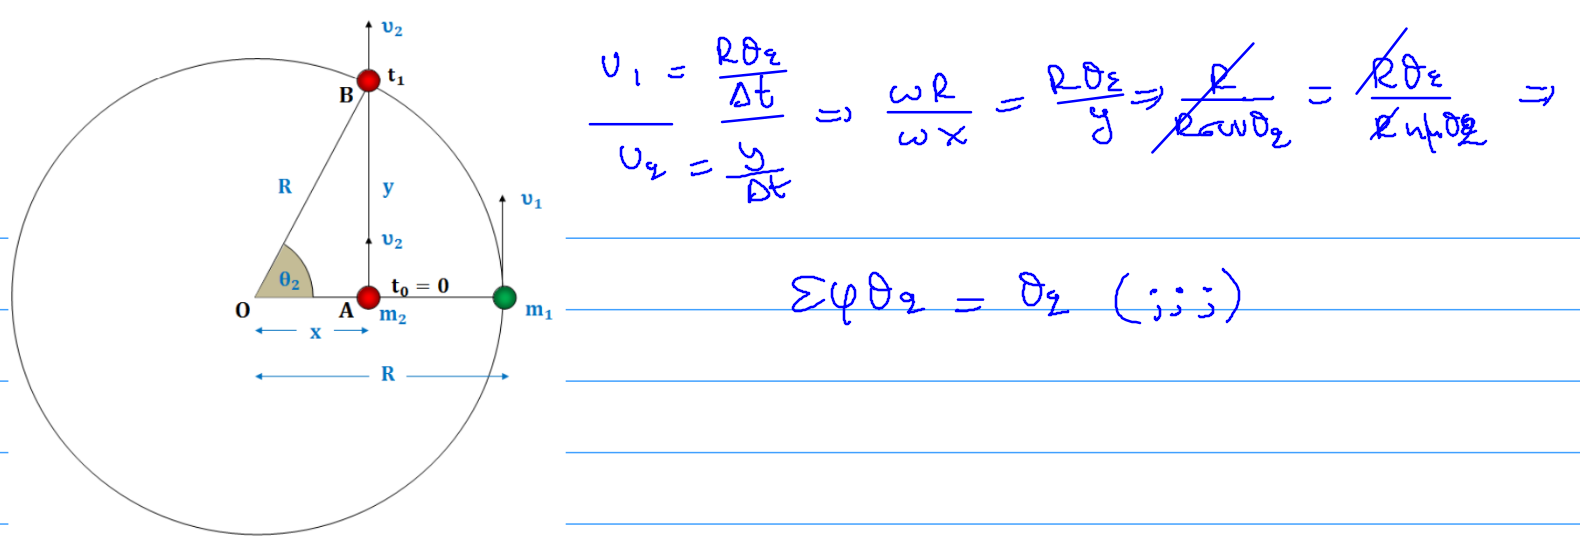 υ₂
t₁
B
R
y
υ₁
υ₂
θ₂
t₀ = 0
O
A
m₂
m₁
x
R
υ₁ = Rθ₂/Δt
υ₂ = y/Δt
⇒ ωR/ωx = Rθ₂/y ⇒ R/Rσυνθ₂ = Rθ₂/Rημθ₂ ⇒
Σφθ₂ = θ₂ (;;;)